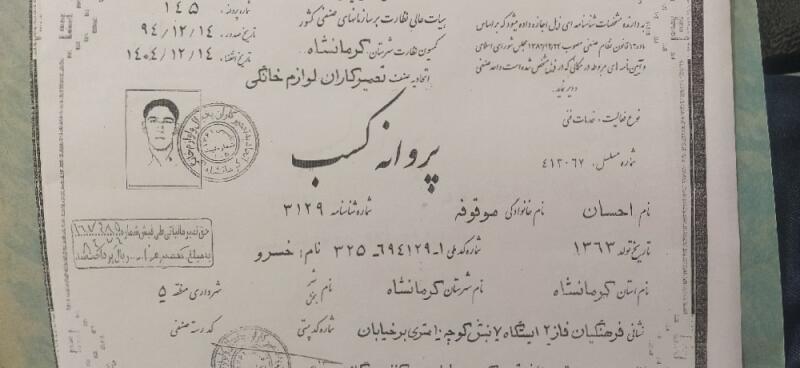 هیات عالی نظارت بر سازمانهای صنفی کشور
کمیسیون نظارت شهرستان: کرمانشاه
اتحادیه صنف تعمیرکاران لوازم خانگی
شماره پرونده: ۱۴۵
تاریخ صدور: ۹۴/۱۲/۱۴
تاریخ انقضاء: ۱۴۰۴/۱۲/۱۴
به دارنده مشخصات شناسنامه ای ذیل اجازه داده میشود که بر اساس
ماده ۱۲ قانون نظام صنفی مصوب ۱۳۸۲/۱۲/۲۴ مجلس شورای اسلامی
و آیین نامه های مربوطه در مکانی که در ذیل مشخص شده است واحد صنفی
دایر نماید.
نوع فعالیت: خدمات فنی
شماره مسلسل: ۴۱۳۰۶۷
پروانه کسب
نام احسان نام خانوادگی موقوفه شماره شناسنامه ۳۱۲۹
تاریخ تولد ۱۳۶۳ شماره کد ملی ۱-۶۹۴۱۲۹-۳۲۵ نام: خسرو
نام استان کرمانشاه نام شهرستان کرمانشاه نام شهر بخش شهرداری منطقه ۵
نشانی فرهنگیان فاز ۲ ایستگاه ۷ نبش کوچه ۱۰ متری بر خیابان شماره کد پستی کد رسته صنفی